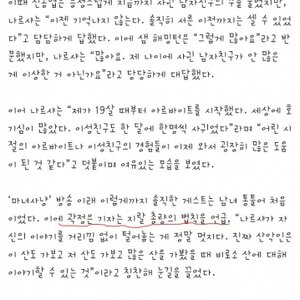 이때 신동엽은 능청스럽게 지금까지 사귄 남자친구의 수를 물었지만,
나르샤는 "이젠 기억나지 않는다. 솔직히 서른 이전까지는 셀 수 있었
다"고 담담하게 답했다. 이에 샘 해밍턴은 "그렇게 많아요"라고 반
문했지만, 나르샤는 "많아요. 제 나이에 사귄 남자친구가 안 많은
게 이상한 거 아닌가요"라고 당당하게 대답했다.
이어 나르샤는 "제가 19살 때부터 아르바이트를 시작했다. 세상에 호
기심이 많았다. 이성친구도 한 달에 한명씩 사귀었다"라며 "어린 시
절의 아르바이트나 이성친구의 경험들이 이제 와서 굉장히 많은 도움
이 된 것 같다"고 덧붙이며 여유있는 모습을 보였다.
'마녀사냥' 방송 이래 이렇게까지 솔직한 게스트는 남녀 통틀어 처음
이었다. 이에 곽정은 기자는 지랄 총량의 법칙을 언급, "나르샤가 자
신의 이야기를 거리낌 없이 털어놓는 게 정말 멋지다. 진짜 산악인은
이 산도 가보고 저 산도 가보고 많은 산을 가봤을 때 비로소 산에 대해
이야기할 수 있는 것"이라고 칭찬해 눈길을 끌었다.